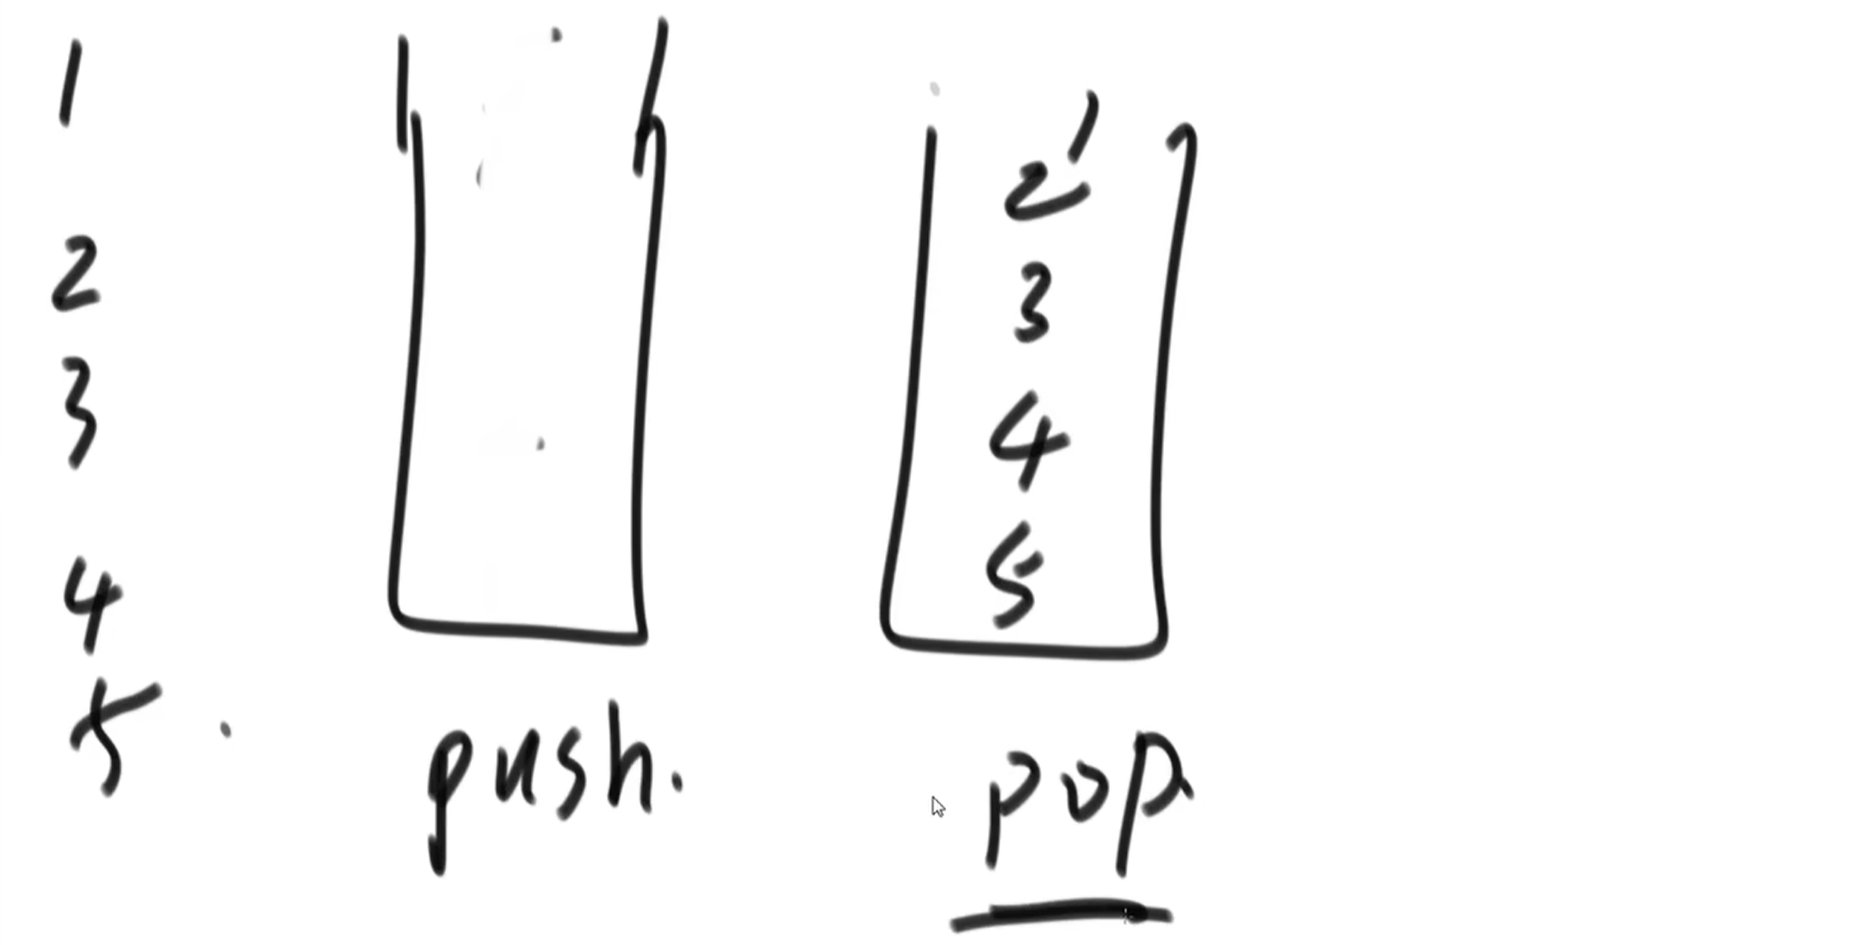 1
2
3
4
5
push.
1
2
3
4
5
pop